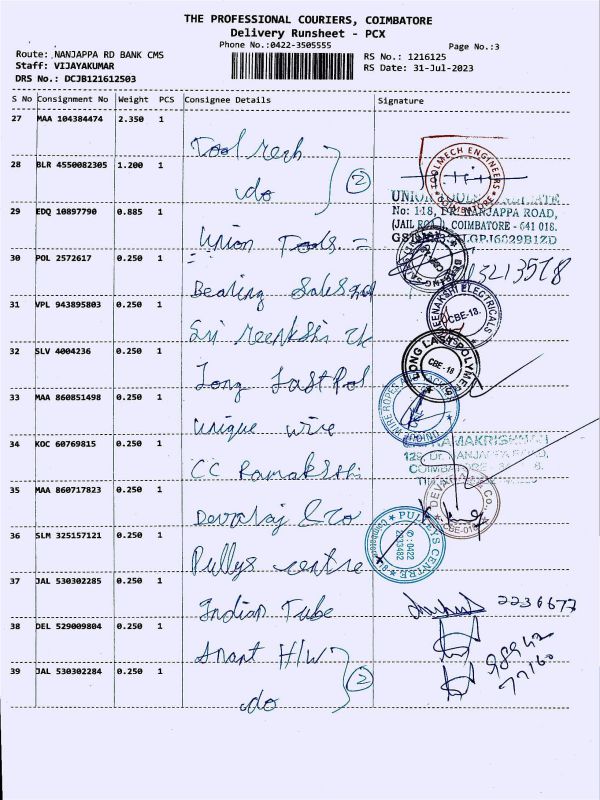 THE PROFESSIONAL COURIERS, COIMBATORE
Delivery Runsheet - PCX
Phone No.:0422-3505555
Page No.:3
Route: NANJAPPA RD BANK CMS
Staff: VIJAYAKUMAR
DRS No.: DCJB121612503
RS No.: 1216125
RS Date: 31-Jul-2023
S No Consignment No Weight PCS Consignee Details Signature
27 MAA 104384474 2.350 1
Tool Mech
28 BLR 4550082305 1.200 1
do
2
TOOLMECH ENGINEERS
COIMBATORE
29 EDQ 10897790 0.885 1
Union Tools =
No: 118, Dr. NANJAPPA ROAD,
(JAIL ROAD), COIMBATORE - 641 018.
30 POL 2572617 0.250 1
Bearing Sales
3213578
31 VPL 943895803 0.250 1
Sri Meenkshi
MEENAKSHI ELECTRICALS
CBE-18.
32 SLV 4004236 0.250 1
Long Last Pol
LONG LAST POLYMER
CBE-18
33 MAA 860851498 0.250 1
Unique wire
34 KOC 60769815 0.250 1
CC Ramakrshi
RAMAKRISHNAN
129, Dr. NANJAPPA ROAD,
35 MAA 860717823 0.250 1
Devaraj & Co
DEVARAJ & Co.
CBE-018
36 SLM 325157121 0.250 1
Pullys centre
PULLEYS CENTRE
37 JAL 530302285 0.250 1
Indian Tube
2236677
38 DEL 529009804 0.250 1
Anant H/W
39 JAL 530302284 0.250 1
do
2
98942
77160